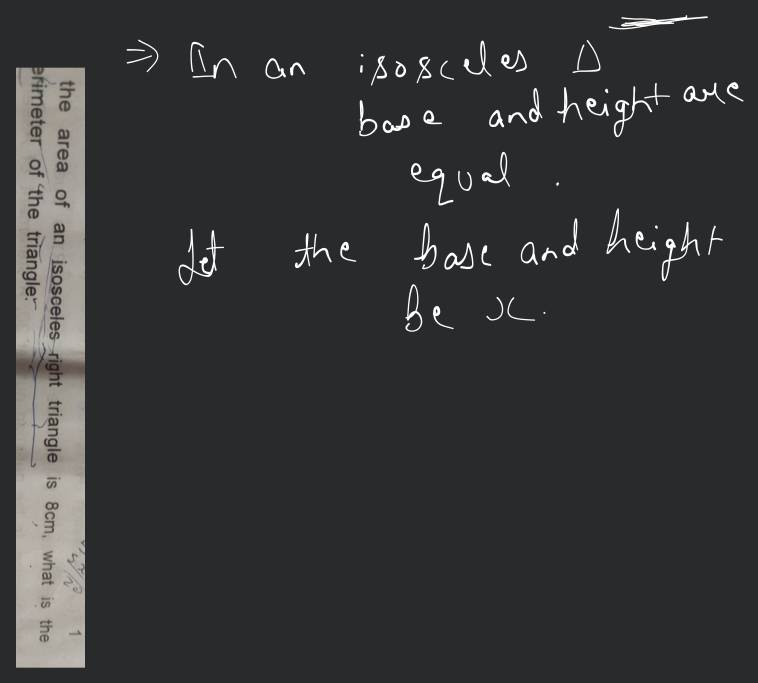 the area of an isosceles right triangle is 8cm, what is the
erimeter of the triangle.
1
⇒ In an isosceles Δ
base and height are
equal.
Let the base and height
be x.